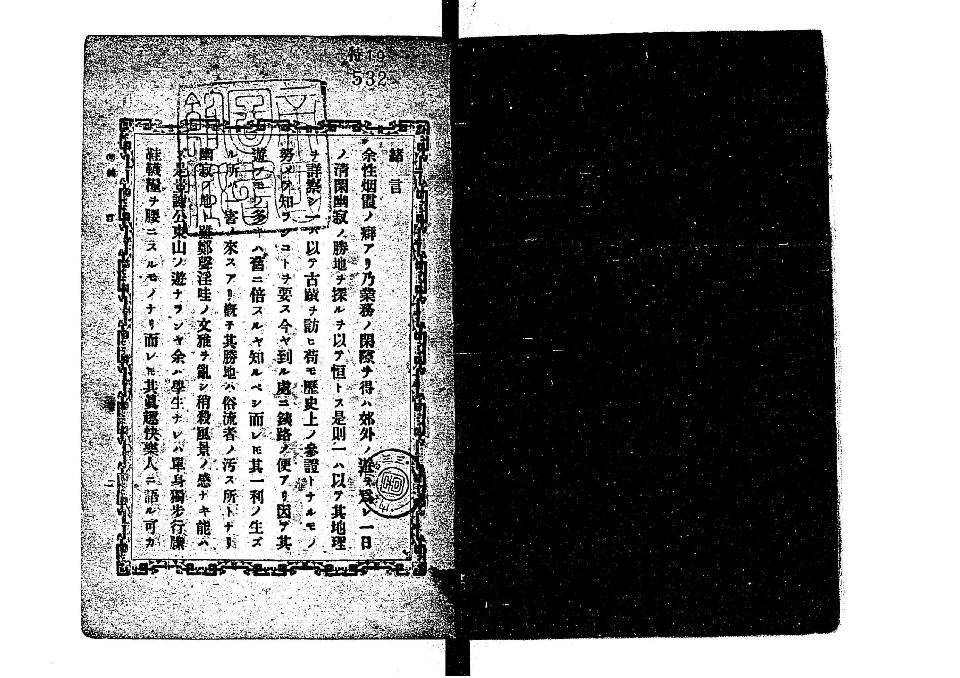 特19
532
緒言
余性烟霞ノ癖アリ乃業務ノ閑隙ヲ得ハ郊外ノ遊ヲ爲シ一日
ノ淸閑幽寂ノ勝地ヲ探ルヲ以テ恒トス是則一ハ以テ其地理
ヲ詳察シ一ハ以テ古蹟ヲ訪ヒ荷モ歷史上ノ參證トナルモノ
努メテ知ランコトヲ要ス今ヤ到ル處ニ鐵路ノ便アリ因テ其
遊フモノ多キハ舊ニ倍スルヤ知ルベシ而レモ其一利ノ生ズ
ル所ハ一害ノ來スアリ槪テ其勝地ハ俗流者ノ汚ス所トナリ
幽寂ノ地ト雖鄭聲淫哇ノ文雅ヲ亂シ稍殺風景ノ感ナキ能ハ
ズ是豈謝公東山ノ遊ナランヤ余ハ學生ナレハ單身獨步行縢
鞋韈糧ヲ腰ニスルモノナリ而レモ其眞趣快樂人ニ語ル可カ
緒言
一